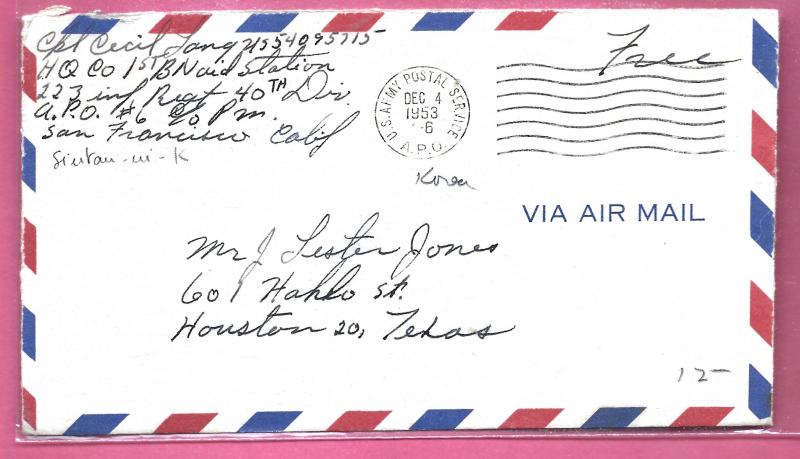 Cpl Cecil Lang US54095715
HQ Co 1st BN aid Station
223 inf Regt 40TH Div.
A.P.O. #6 c/o Pm.
San Francisco Calif
Free
U.S. ARMY POSTAL SERVICE
DEC 4
1953
6
A.P.O.
Korea
VIA AIR MAIL
Mr J Lester Jones
601 Hahlo St.
Houston 20, Texas
12-